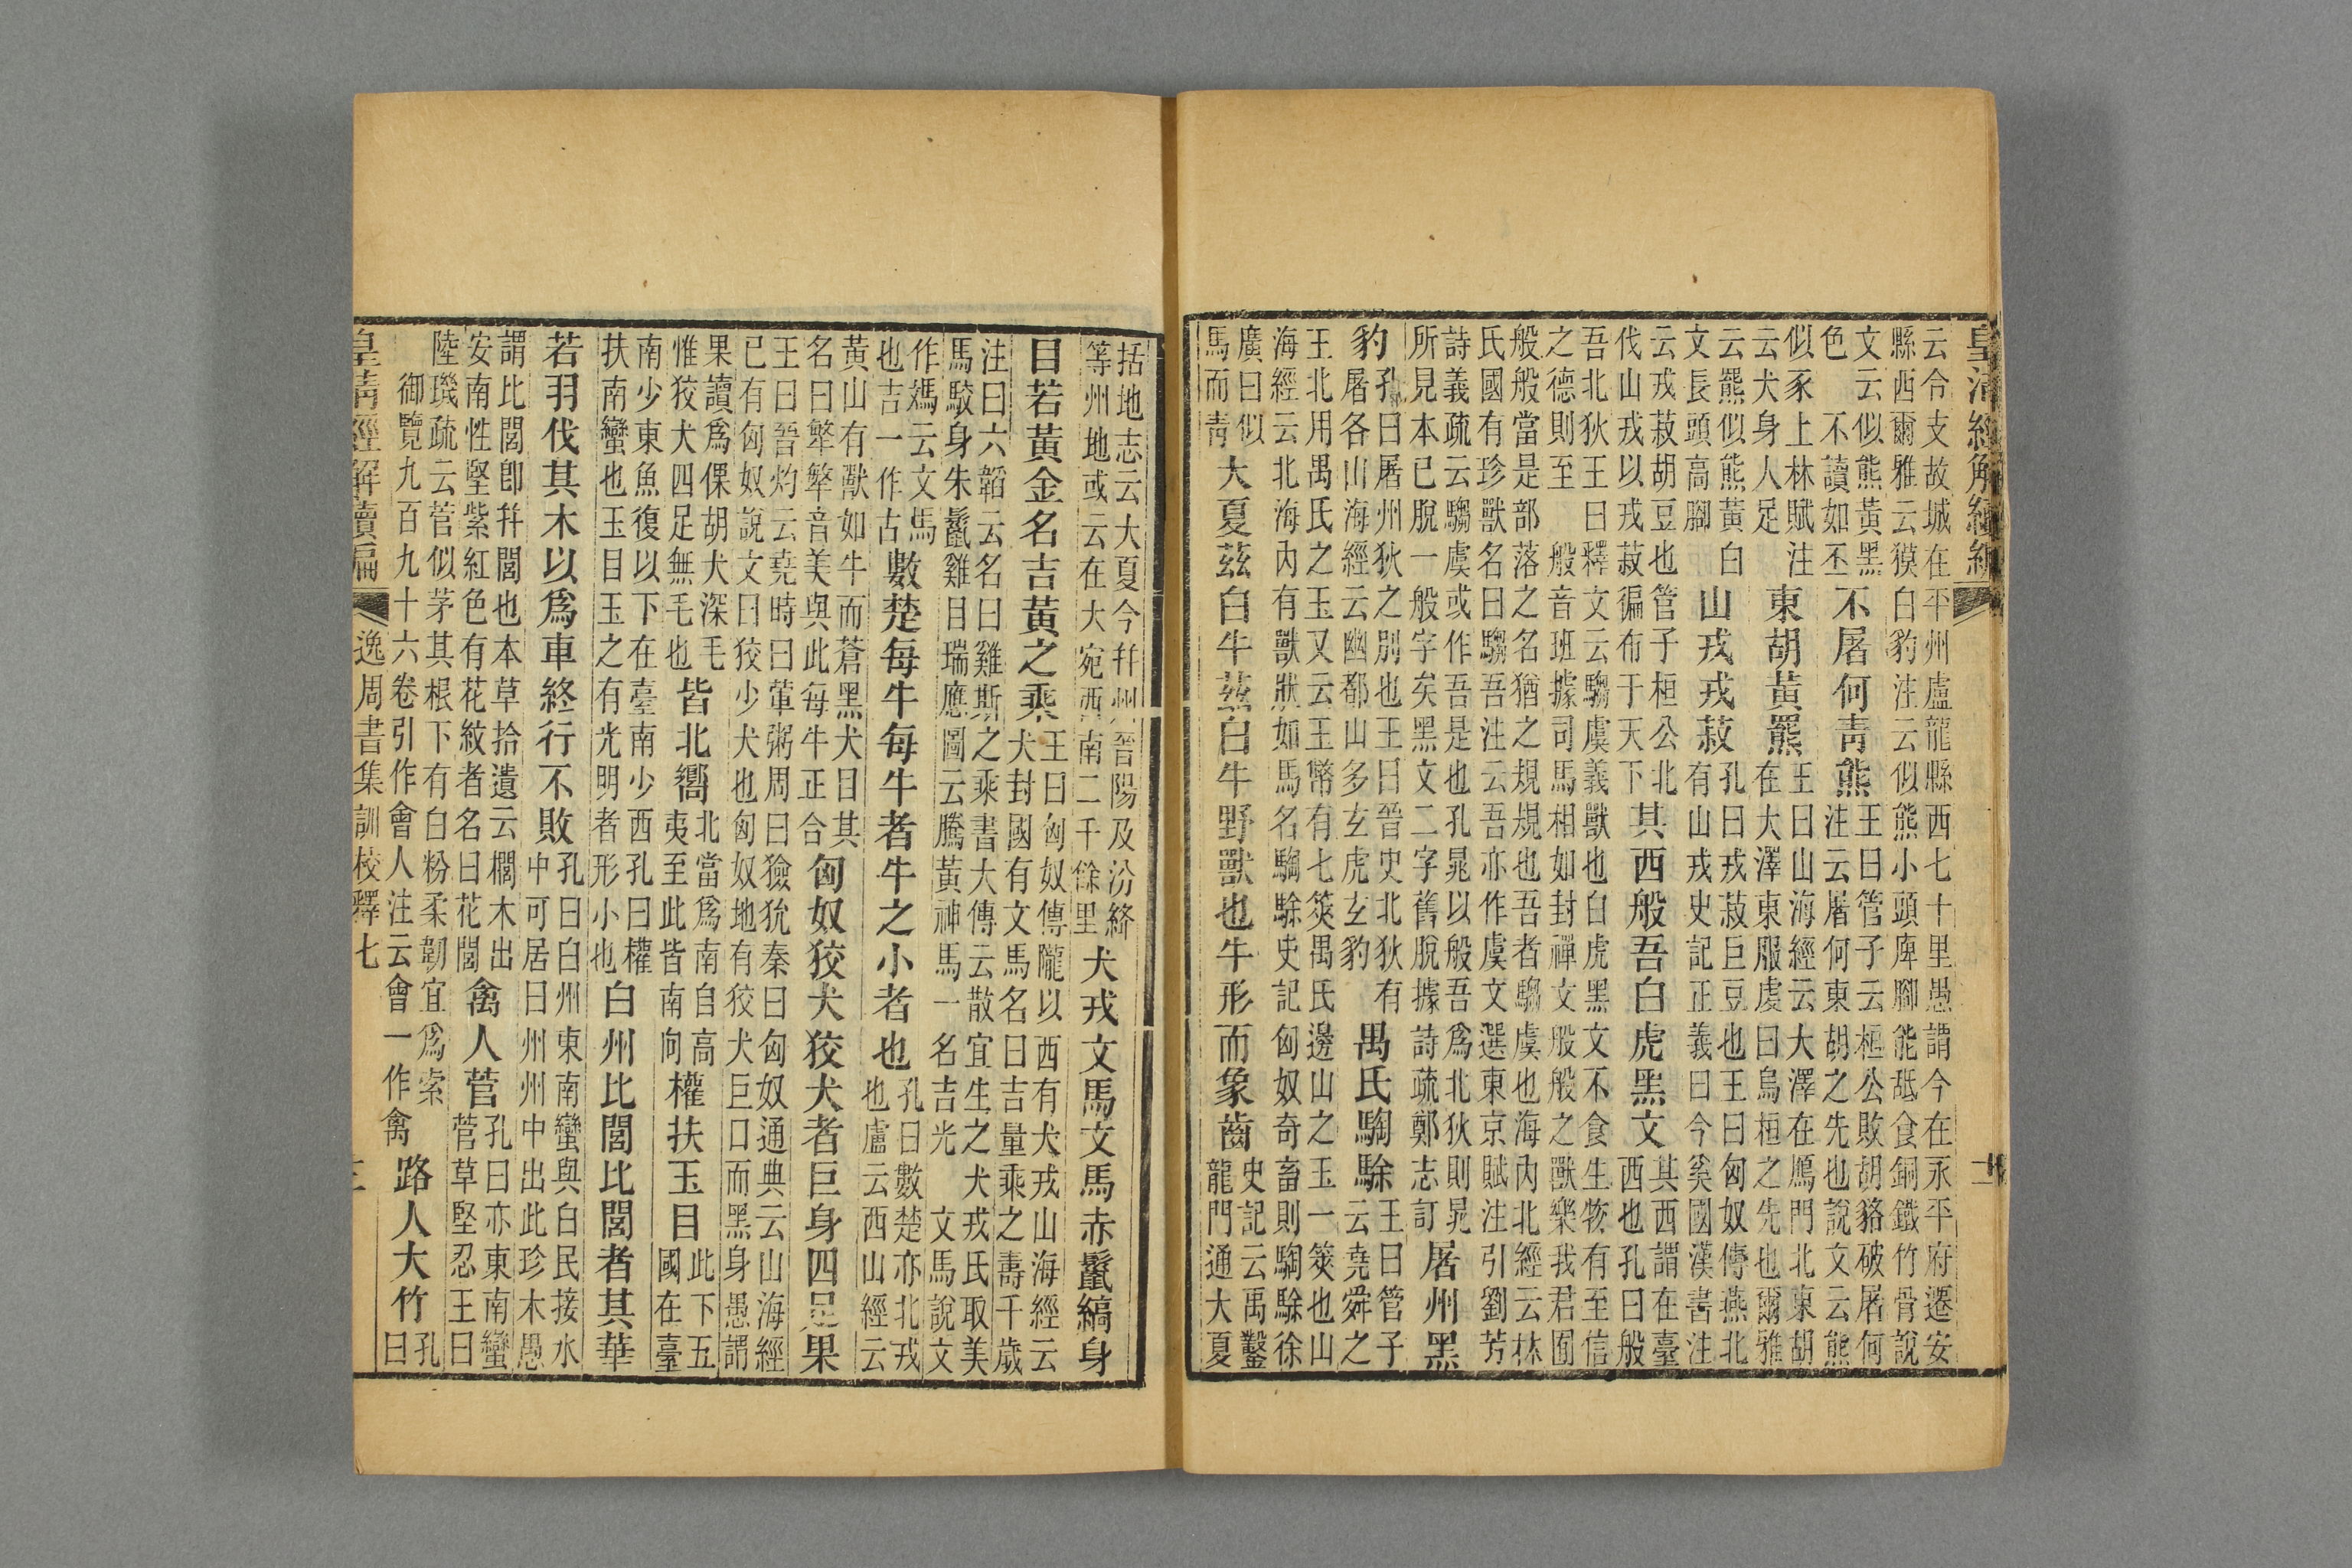 皇清經解續編
二
云令支故城在平州盧龍縣西七十里愚謂今在永平府遷安
縣西爾雅云獏白豹注云似熊小頭庳腳能舐食銅鐵竹骨說
文云似熊黃黑
色 不讀如丕
不屠何青熊
王曰管子云桓公敗胡貉破屠何
注云屠何東胡之先也說文云熊
似豕上林賦注
云犬身人足
東胡黃羆
王曰山海經云大澤在鴈門北東胡
在大澤東服虔曰烏桓之先也爾雅
云羆似熊黃白
文長頭高腳
山戎戎菽
孔曰戎菽巨豆也王曰匈奴傳燕北
有山戎史記正義曰今奚國漢書注
云戎菽胡豆也管子桓公北
伐山戎以戎菽徧布于天下
其西般吾白虎黑文
其西謂在臺
西也孔曰般
吾北狄王曰釋文云騶虞義獸也白虎黑文不食生物有至信
之德則至 般音班據司馬相如封禪文般般之獸樂我君囿
般般當是部落之名猶之規規也吾者騶虞也海內北經云林
氏國有珍獸名曰騶吾注云吾亦作虞文選東京賦注引劉芳
詩義疏云騶虞或作吾是也孔晁以般吾爲北狄則晁
所見本已脫一般字矣黑文二字舊脫據詩疏鄭志訂
屠州黑
豹
孔曰屠州狄之別也王曰晉史北狄有
屠各山海經云幽都山多玄虎玄豹
禺氏騊駼
王曰管子
云堯舜之
王北用禺氏之玉又云玉幣有七筴禺氏邊山之玉一筴也山
海經云北海內有獸狀如馬名騊駼史記匈奴奇畜則騊駼徐
廣曰似
馬而青
大夏茲白牛茲白牛野獸也牛形而象齒
史記云禹鑿
龍門通大夏
括地志云大夏今幷州晉陽及汾絳
等州地或云在大宛西南二千餘里
犬戎文馬文馬赤鬣縞身
目若黃金名吉黃之乘
王曰匈奴傳隴以西有犬戎山海經云
犬封國有文馬名曰吉量乘之壽千歲
注曰六韜云名曰雞斯之乘書大傳云散宜生之犬戎氏取美
馬駮身朱鬣雞目瑞應圖云騰黃神馬一名吉光 文馬說文
作㺟云文馬
也吉一作古
數楚每牛每牛者牛之小者也
孔曰數楚亦北戎
也盧云西山經云
黃山有獸如牛而蒼黑犬目其
名曰㸹㸹音美與此每牛正合
匈奴狡犬狡犬者巨身四足果
王曰晉灼云堯時曰葷粥周曰獫狁秦曰匈奴通典云山海經
已有匈奴說文曰狡少犬也匈奴地有狡犬巨口而黑身愚謂
果讀爲倮胡犬深毛
惟狡犬四足無毛也
皆北嚮
北當爲南自高
夷至此皆南向
權扶玉目
此下五
國在臺
南少東魚復以下在臺南少西孔曰權
扶南蠻也玉目玉之有光明者形小也
白州比閭比閭者其華
若羽伐其木以爲車終行不敗
孔曰白州東南蠻與白民接水
中可居曰州州中出此珍木愚
謂比閭卽幷閭也本草拾遺云櫚木出
安南性堅紫紅色有花紋者名曰花閭
禽人菅
孔曰亦東南蠻
菅草堅忍王曰
陸璣疏云菅似茅其根下有白粉柔韌宜爲索
御覽九百九十六卷引作會人注云會一作禽
路人大竹
孔
曰
皇清經解續編
逸周書集訓校釋七
三